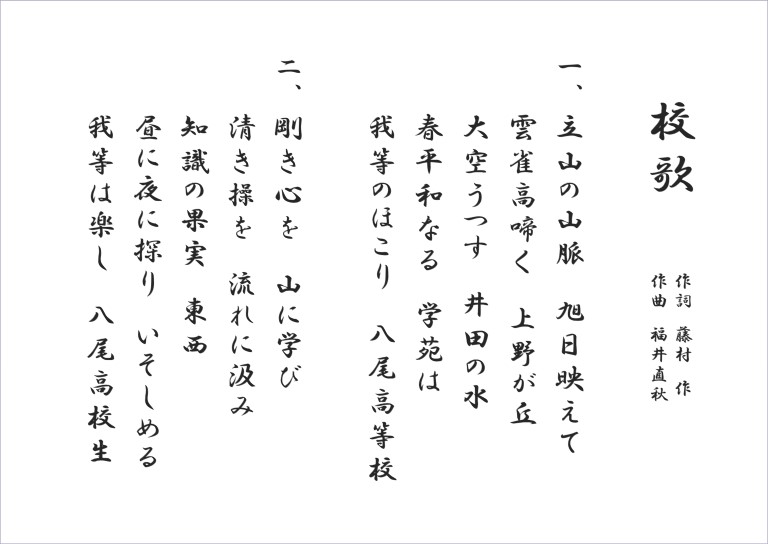 校歌
作詞　藤村　作
作曲　福井直秋
一、立山の山脈　旭日映えて
雲雀高啼く　上野が丘
大空うつす　井田の水
春平和なる　学苑は
我等のほこり　八尾高等校
二、剛き心を　山に学び
清き操を　流れに汲み
知識の果実　東西
昼に夜に探り　いそしめる
我等は楽し　八尾高校生